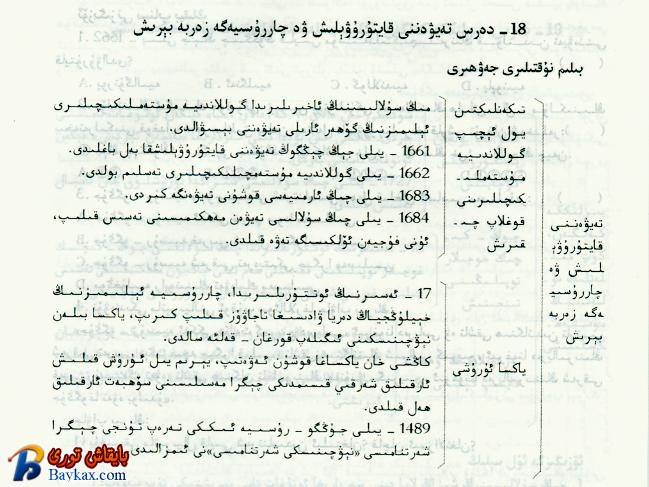 18 ـ دەرس تەيۋەننى قايتۇرۇۋېلىش ۋە چاررۇسىيەگە زەربە بېرىش
بىلىم نۇقتىلىرى جەۋھىرى
تەيۋەننى
قايتۇرۇۋې
لىش ۋە
چاررۇسىي
ەگە زەربە
بېرىش
تىكەنلىكتىن
يول ئېچىپ
گوللاندىيە
مۇستەملىـ
كىچىلىرىنى
قوغلاپ چىـ
قىرىش
مىڭ سۇلالىسىنىڭ ئاخىرلىرىدا گوللاندىيە مۇستەملىكىچىلىرى
ئېلىمىزنىڭ گۆھەر ئارىلى تەيۋەننى بېسىۋالدى.
1661 ـ يىلى جېڭ چېڭگوڭ تەيۋەننى قايتۇرۇۋېلىشقا بەل باغلىدى.
1662 ـ يىلى گوللاندىيە مۇستەمچىلىكىچىلىرى تەسلىم بولدى.
1683 ـ يىلى چىڭ ئارمىيەسى قوشۇنى تەيۋەنگە كىردى.
1684 ـ يىلى چىڭ سۇلالىسى تەيۋەن مەھكىمىسىنى تەسىس قىلىپ،
ئۇنى فۇجيەن ئۆلكىسىگە تەۋە قىلدى.
ياكسا ئۇرۇشى
17 ـ ئەسىرنىڭ ئوتتۇرىلىرىدا، چاررۇسىيە ئېلىمىزنىڭ
خېيلۇڭجياڭ دەريا ۋادىسىغا تاجاۋۇز قىلىپ كىرىپ، ياكسا بىلەن
نېۋچىنىسكىنى ئىگىلەپ قورغان ـ قەلئە سالدى.
كاڭشى خان ياكساغا قوشۇن ئەۋەتىپ، بېرىم يىل ئۇرۇش قىلىش
ئارقىلىق شەرقىي قىسىمدىكى چېگرا مەسىلىسىنى سۆھبەت ئارقىلىق
ھەل قىلدى.
1489 ـ يىلى جۇڭگو ـ رۇسىيە ئىككى تەرەپ تۇنجى چېگرا
شەرتنامىسى «نېۋچىنىسكى شەرتنامىسى»نى ئىمزالىدى.
بايقاش تورى
Baykax.com